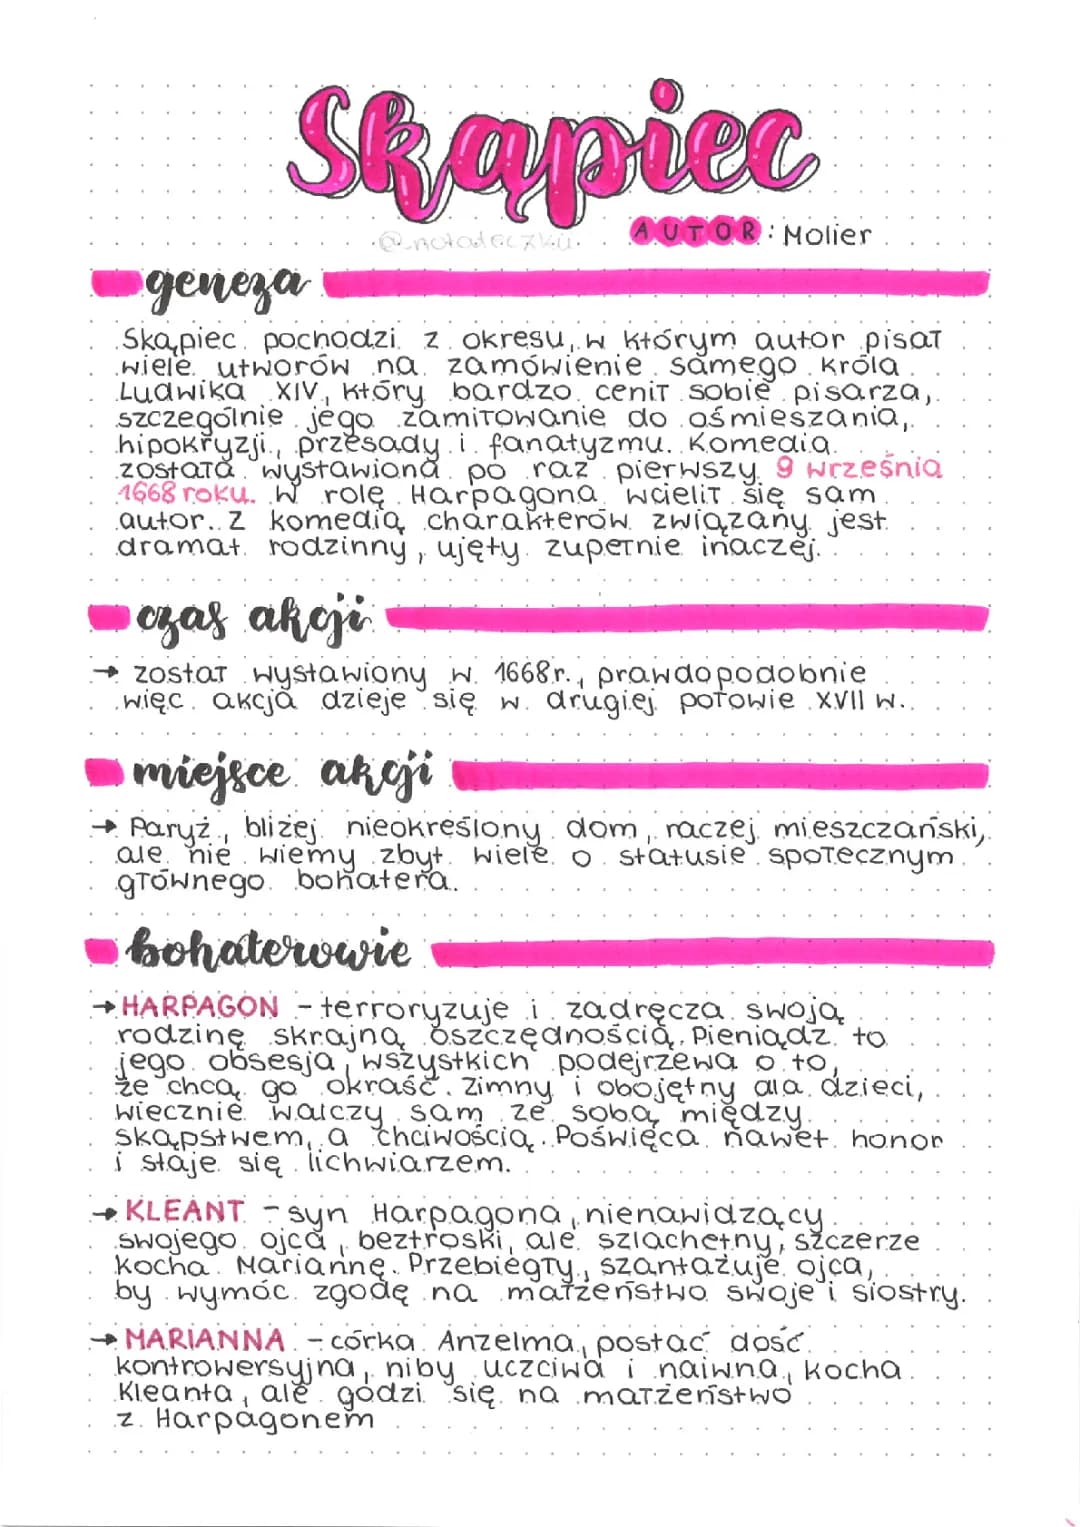 Skąpiec
@notadeczku
AUTOR: Molier
geneza
Skąpiec pochodzi z okresu, w którym autor pisał
wiele utworów na zamówienie samego króla
Ludwika XIV, który bardzo cenił sobie pisarza,
szczególnie jego zamiłowanie do ośmieszania,
hipokryzji, przesady i fanatyzmu. Komedia
została wystawiona po raz pierwszy 9 września
1668 roku. W rolę Harpagona wcielił się sam
autor. Z komedią charakterów związany jest
dramat rodzinny, ujęty zupełnie inaczej.
czas akcji
→ został wystawiony w 1668r., prawdopodobnie
więc akcja dzieje się w drugiej połowie XVII w.
miejsce akcji
→ Paryż, bliżej nieokreślony dom, raczej mieszczański,
ale nie wiemy zbyt wiele o statusie społecznym
głównego bohatera.
bohaterowie
→ HARPAGON - terroryzuje i zadręcza swoją
rodzinę skrajną oszczędnością. Pieniądz to
jego obsesja, wszystkich podejrzewa o to,
że chcą go okraść. Zimny i obojętny dla dzieci,
wiecznie walczy sam ze sobą między
skąpstwem, a chciwością. Poświęca nawet honor
i staje się lichwiarzem.
→ KLEANT - syn Harpagona, nienawidzący
swojego ojca, beztroski, ale szlachetny, szczerze
kocha Mariannę. Przebiegły, szantażuje ojca,
by wymóc zgodę na małżeństwo swoje i siostry.
→ MARIANNA - córka Anzelma, postać dość
kontrowersyjna, niby uczciwa i naiwna, kocha
Kleanta, ale godzi się na małżeństwo
z Harpagonem